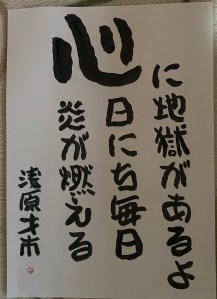 心に地獄があるよ
日にち毎日
炎が燃える
浅原才市